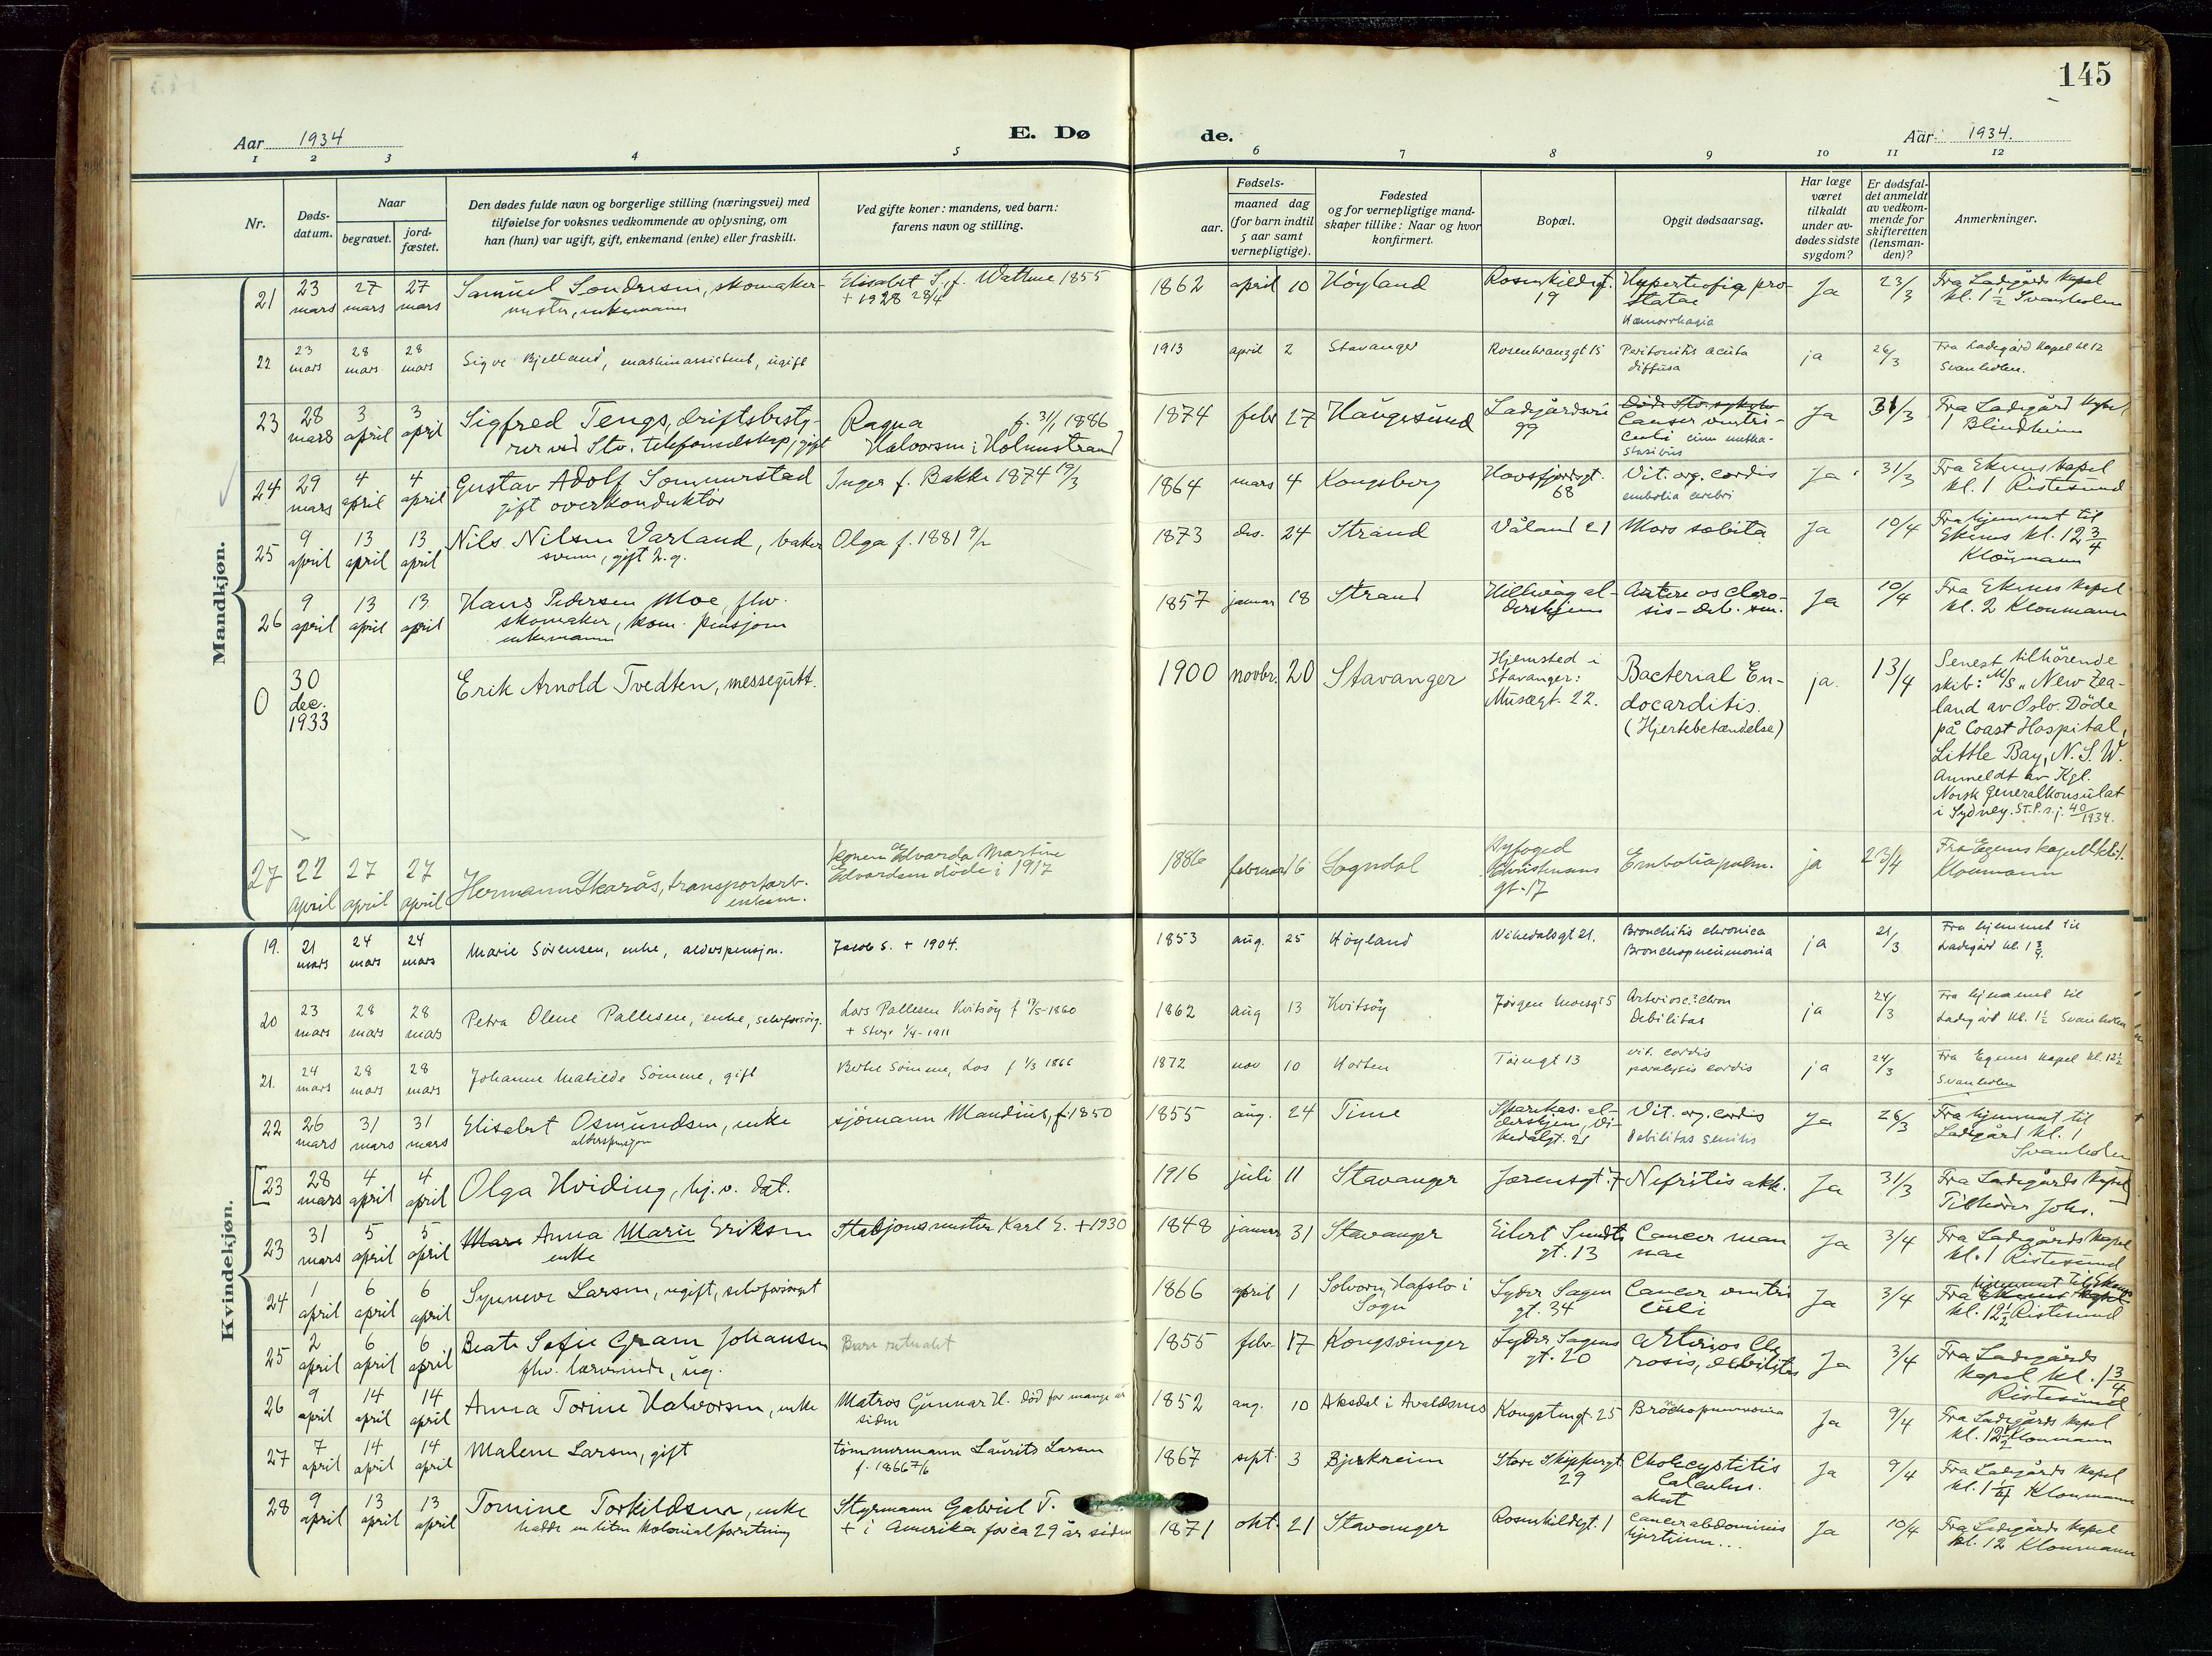 145
Aar 1934
E. Dø
de.
Aar 1934.
1 2 3 4 5 6 7 8 9 10 11 12
Nr.
Døds-
datum.
Naar
begravet.
jord-
fæstet.
Den dødes fulde navn og borgerlige stilling (næringsvei) med
tilføielse for voksnes vedkommende av oplysning, om
han (hun) var ugift, gift, enkemand (enke) eller fraskilt.
Ved gifte koner: mandens, ved barn:
farens navn og stilling.
Fødsels-
aar.
maaned dag
(for barn indtil
5 aar samt
vernepligtige).
Fødested
og for vernepligtige mand-
skaper tillike: Naar og hvor
konfirmert.
Bopæl.
Opgit dødsaarsag.
Har læge
været
tilkaldt
under av-
dødes sidste
sygdom?
Er dødsfal-
det anmeldt
av vedkom-
mende for
skifteretten
(lensman-
den)?
Anmerkninger.
Mandkjøn.
21 23 mars 27 mars 27 mars Samuel Sondresen, skomaker-
mester, enkemann
Elisabet S. f. 1855
+ 1928 28/4
1862 april 10 Höyland
Rosenkildegt.
19
Hypertrofia pro-
statae
Hæmorrhagia
Ja 23/3
Fra Ladegårds kapel
kl. 1 1/2 Svanholm
22 23 mars 28 mars 28 mars Sigve Bjelland, maskinassistent, ugift
1913 april 2 Stavanger Rosenkranzgt 15
Peritonitis acuta
diffusa
ja 26/3
Fra Ladegård kapel kl 12
Svanholm.
23 28 mars 3 april 3 april Sigfred Tengs, driftsbesty-
rer ved Stv. telefonselskap, gift
Ragna f. 31/1 1886
Halvorsen i Holmestrand
1874 febr 27 Haugesund
Ladegårdsvei
99
Cancer ventri-
culi cum meta-
stasibus
Ja 31/3
Fra Ladegård kapel
1 Blindheim
24 29 mars 4 april 4 april Gustav Adolf Sommerstad
gift overkonduktör
Inger f. Bakke 1874 19/3
1864 mars 4 Kongsberg
Havsfjordgt.
68
Vit. org. cordis
embolia cerebri
Ja 31/3
Fra Ekenes kapel
kl. 1 Ristesund
25 9 april 13 april 13 april Nils Nilsen Varland, baker
svenn, gift 2. g.
Olga f. 1881 9/2
1873 des. 24 Strand Våland 21 Mors subita Ja 10/4
Fra hjemmet til
Egenes kl. 12 3/4
Kloumann
26 9 april 13 april 13 april Hans Pedersen Moe, fhv.
skomaker, kom. pensjon
enkemann
1857 januar 18 Strand
Hillevåg al-
dershjem
Arterioscloro-
sis – deb. sen.
Ja 10/4
Fra Ekenes kapel
kl. 2 Kloumann
0 30 dec. 1933 Erik Arnold Tvedten, messegutt.
1900 novbr. 20 Stavanger
Hjemsted i
Stavanger:
Musegt. 22.
Bacterial En-
docarditis.
(Hjertebetændelse)
ja. 13/4
Senest tilhörende
skib: M/S „New Zea-
land av Oslo. Döde
på Coast Hospital,
Little Bay, N. S. W.
Anmeldt av Kgl.
Norsk Generalkonsulat
i Sydney. ST.P.s.j. 40/1934.
27 22 april 27 april 27 april Hermann Skarås, transportarb.
enkem.
Konen Edvarda Martine
Edvardsen döde i 1917
1886 februar 16 Sogndal
Byfoged
Christensens
gt. 17
Embolia pulm.
ja 23/4
Fra Egenes kapell
Kloumann
Kvindekjøn.
19. 21 mars 24 mars 24 mars Marie Sörensen, enke, alderspensjon. Jacob S. + 1904.
1853 aug. 25 Höyland Vikedalsgt 21.
Bronchitis chronica
Bronchopneumonia
ja 21/3
Fra hjemmet til
Ladegård kl. 1 3/4.
20 23 mars 28 mars 28 mars Petra Olene Pallesen, enke, selvforsörg.
Lars Pallesen Kvitsöy f 17/5-1860
+ Stvgr 1/4-1911
1862 aug 13 Kvitsöy Jörgen Moesgt 5
Arteriosc. chron
Debilitas
ja 24/3
Fra hjemmet til
Ladegård kl. 1 1/2 Svanholm
21. 24 mars 28 mars 28 mars Johanne Matilde Sömme, gift
Sömme, Los f 1/3 1866
1872 nov 10 Horten Tårngt 13
vit. cordis
paralysis cordis
ja 24/3
Fra Egenes kapel kl. 12 1/2
Svanholm
22 26 mars 31 mars 31 mars Elisabet Osmundsen, enke
alderspensjon
sjömann Mandius, f. 1850
1855 aug. 24 Time
Sparekas. al-
dershjem, Vi-
kedalgt. 21
Vit. org. cordis
Debilitas senilis
Ja 26/3
Fra hjemmet til
Ladegård kl. 1
Svanholm
[23 28 mars 4 april 4 april Olga Hviding, hj. v. dat.
1916 juli 11 Stavanger Jorensgt. 7 Nefritis akk. Ja 31/3
Fra Ladegårds kapel
Tilhörer Joh.]
23 31 mars 5 april 5 april Mare Anna Marie Eriksen
enke
Stasjonsmester Karl E. + 1930
1848 januar 31 Stavanger
Eilert Sundts
gt. 13
Cancer mam
mae
Ja 3/4
Fra Ladegårds kapel
kl. 1 Ristesund
24 1 april 6 april 6 april Synneve Larsen, ugift, selvforsörget
1866 april 1
Solvorn, Hafslo i
Sogn
Lyder Sagen
gt. 34
Cancer ventri
culi
Ja 3/4
hjemmet til Ekenes
Fra Ekenes kapel
kl. 12 1/2 Ristesund
25 2 april 6 april 6 april Beate Sofie Gram Johansen
fhv. lærerinde, ug.
Bare ritualet
1855 febr. 17 Kongsvinger
Lyder Sagens
gt. 20
Arterioscle
rosis, debilitas
Ja 3/4
Fra Ladegårds
kapel kl. 1 3/4
Ristesund
26 9 april 14 april 14 april Anna Torine Halvorsen, enke
Matros Gunnar H. död for mange år
siden
1852 aug. 10 Aksdal i Avaldsnes Kongstengt. 25 Bronchopneumonia Ja 9/4
Fra Ladegårds kapel
kl. 12 1/2 Kloumann
27 7 april 14 april 14 april Malene Larsen, gift
tömmermann Laurits Larsen
f. 1866 7/6
1867 sept. 3 Bjerkreim
Store Skippergt.
29
Cholecystitis
Calculus.
akut
Ja 9/4
Fra Ladegårds kapel
kl. 1 1/4 Kloumann
28 9 april 13 april 13 april Tomine Torkildsen, enke
hadde en liten kolonialforretning
Styrmann Gabriel T.
+ i Amerika for ca 29 år siden
1871 okt. 21 Stavanger Rosenkildegt. 1
Cancer abdominis
Ja 10/4
Fra Ladegårds kapel
kl. 12 Kloumann